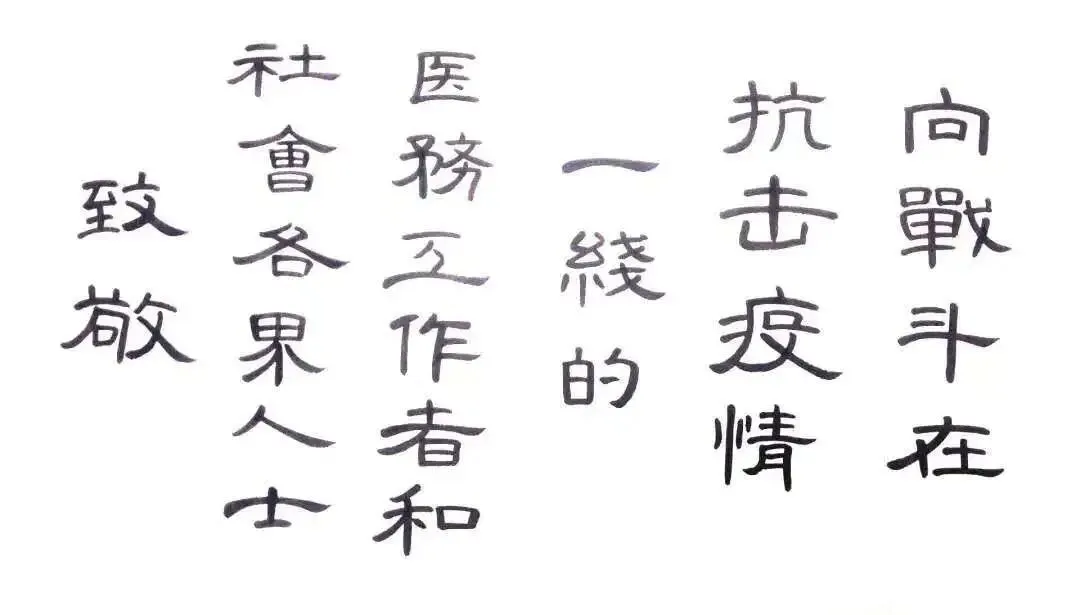 向戰斗在
抗击疫情
一綫的
医務工作者和
社會各界人士
致敬